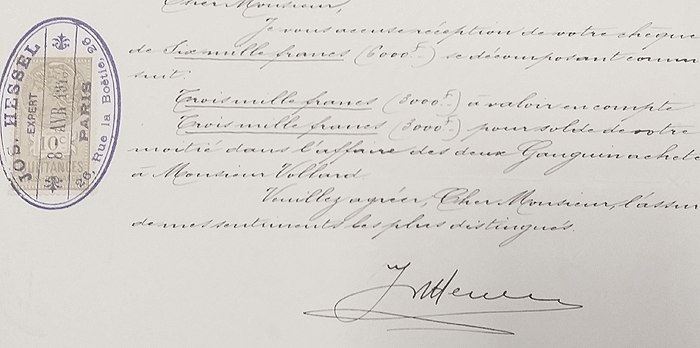 Cher Monsieur,
Je vous accuse réception de votre chèque
de Six mille francs (6000F.) se décomposant comm
suit:
Trois mille francs (3000F.) à valoir en compte
Trois mille francs (3000F.) pour solde de votre
moitié dans l'affaire des deux Gauguin acheté
à Monsieur Vollard.
Veuillez agréer, Cher Monsieur, l'assur
de mes sentiments les plus distingués.
JOS. HESSEL
EXPERT
8 AVR 1913
PARIS
26, Rue la Boëtie, 26
10c
QUITTANCES